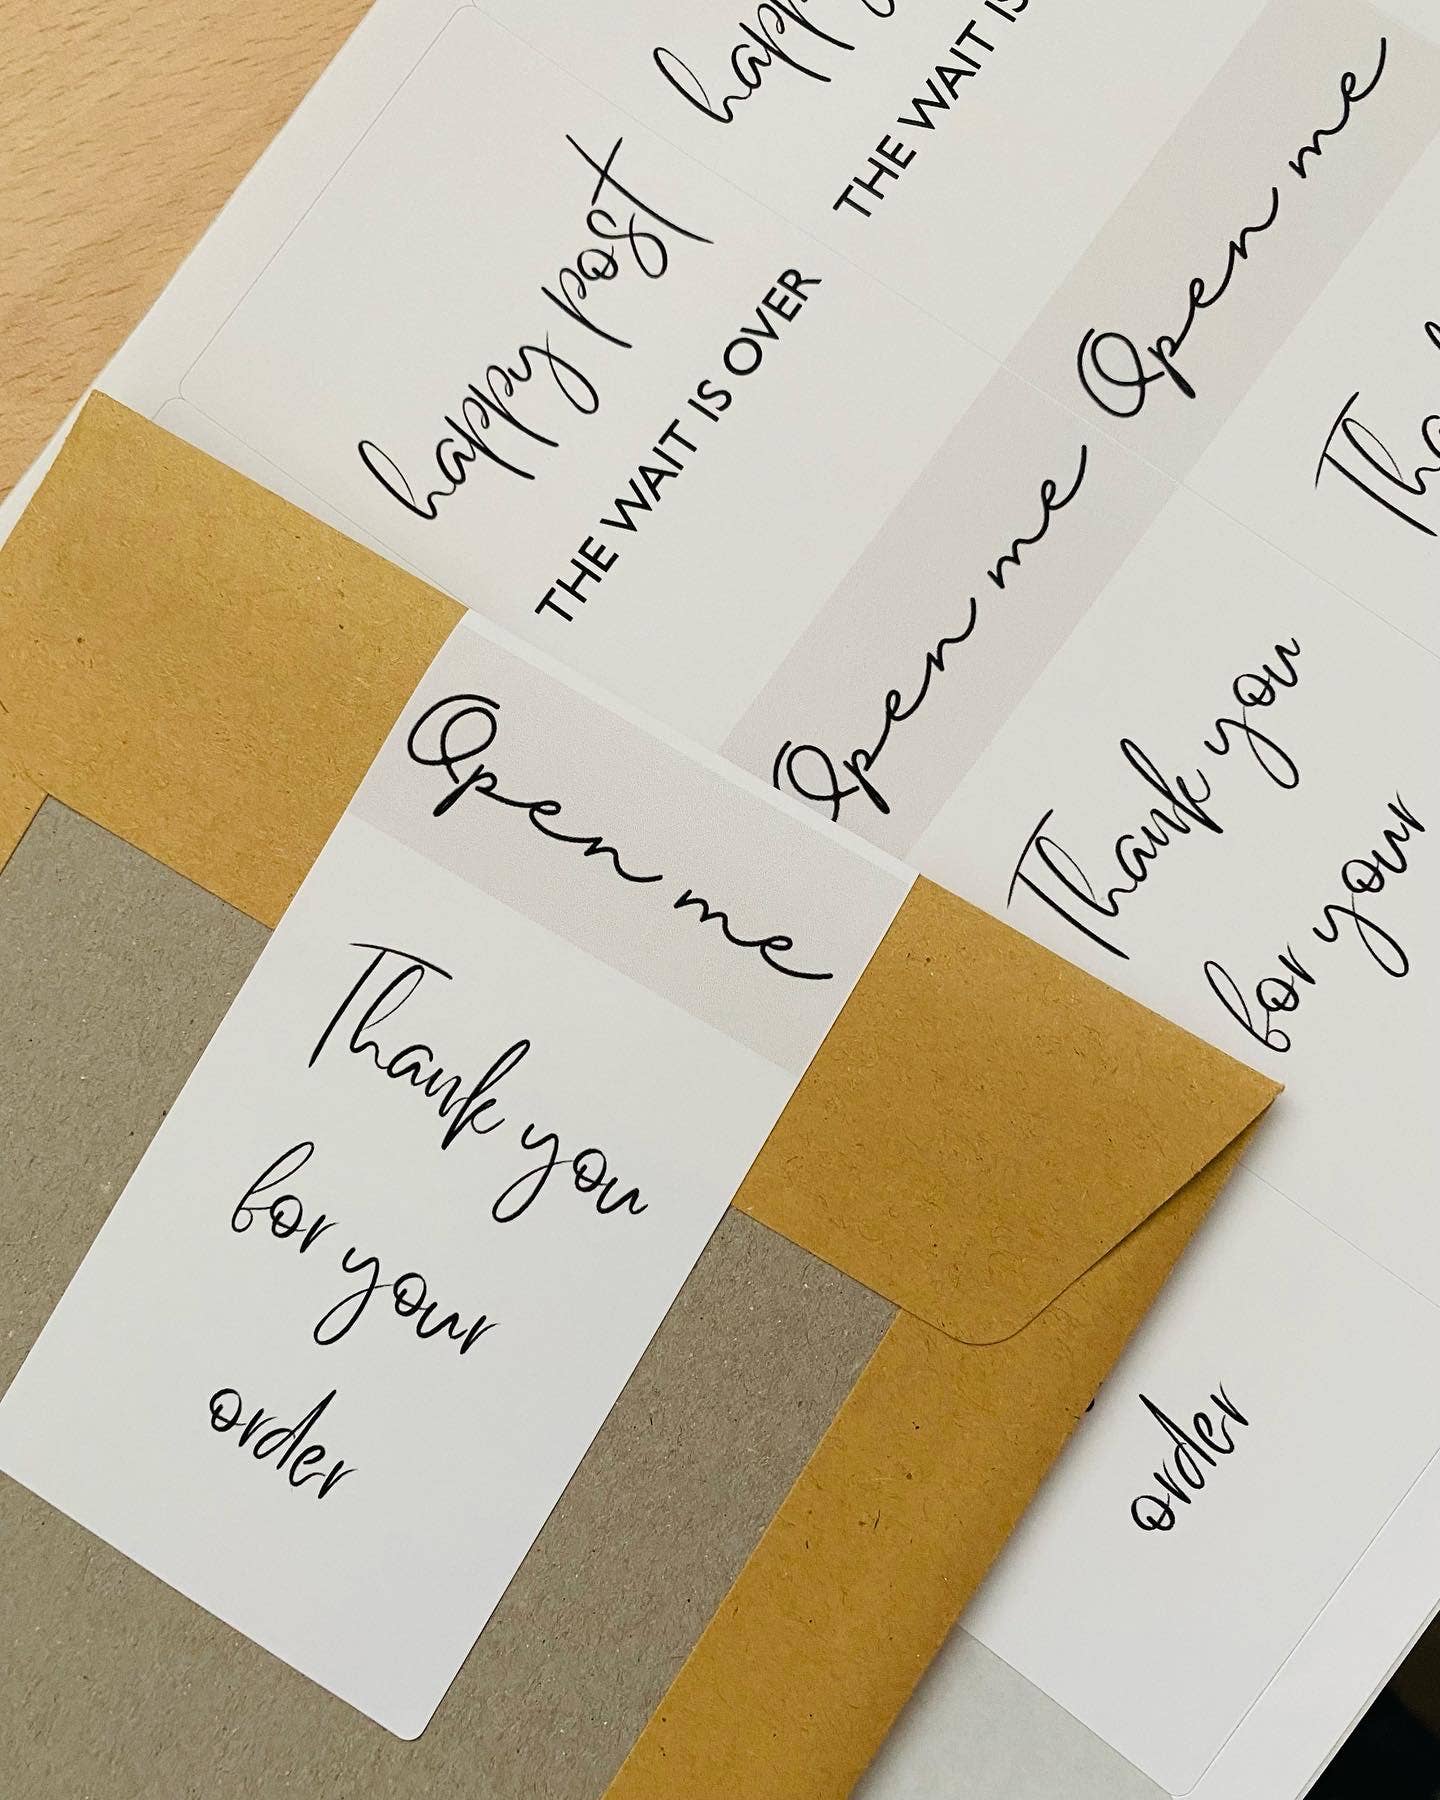 happy
THE WAIT IS
happy post
THE WAIT IS OVER
Open me
Open me
Thank you
for your
order
Open me
Thank you
for your
order